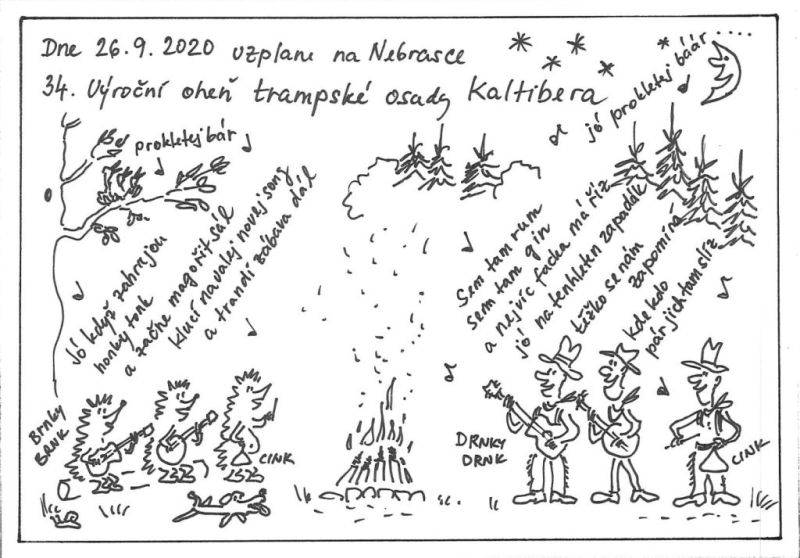 Dne 26.9.2020 vzplane na Nebrasce
34. Výroční oheň trampské osady Kaltibera
prokletej bár
jó prokletej báár ....
Jó když zahrajou
honky tonk
a začne magořit sál
kluci navalej novej song
a trandí zábava dál
Sem tam rum
sem tam gin
a nejvíc facka má říz
jó na tenhleten zapadák
těžko se nám
zapomíná
kdekdo
pár jich tam slíz
BRNKY
BRNK
CINK
DRNKY
DRNK
CINK